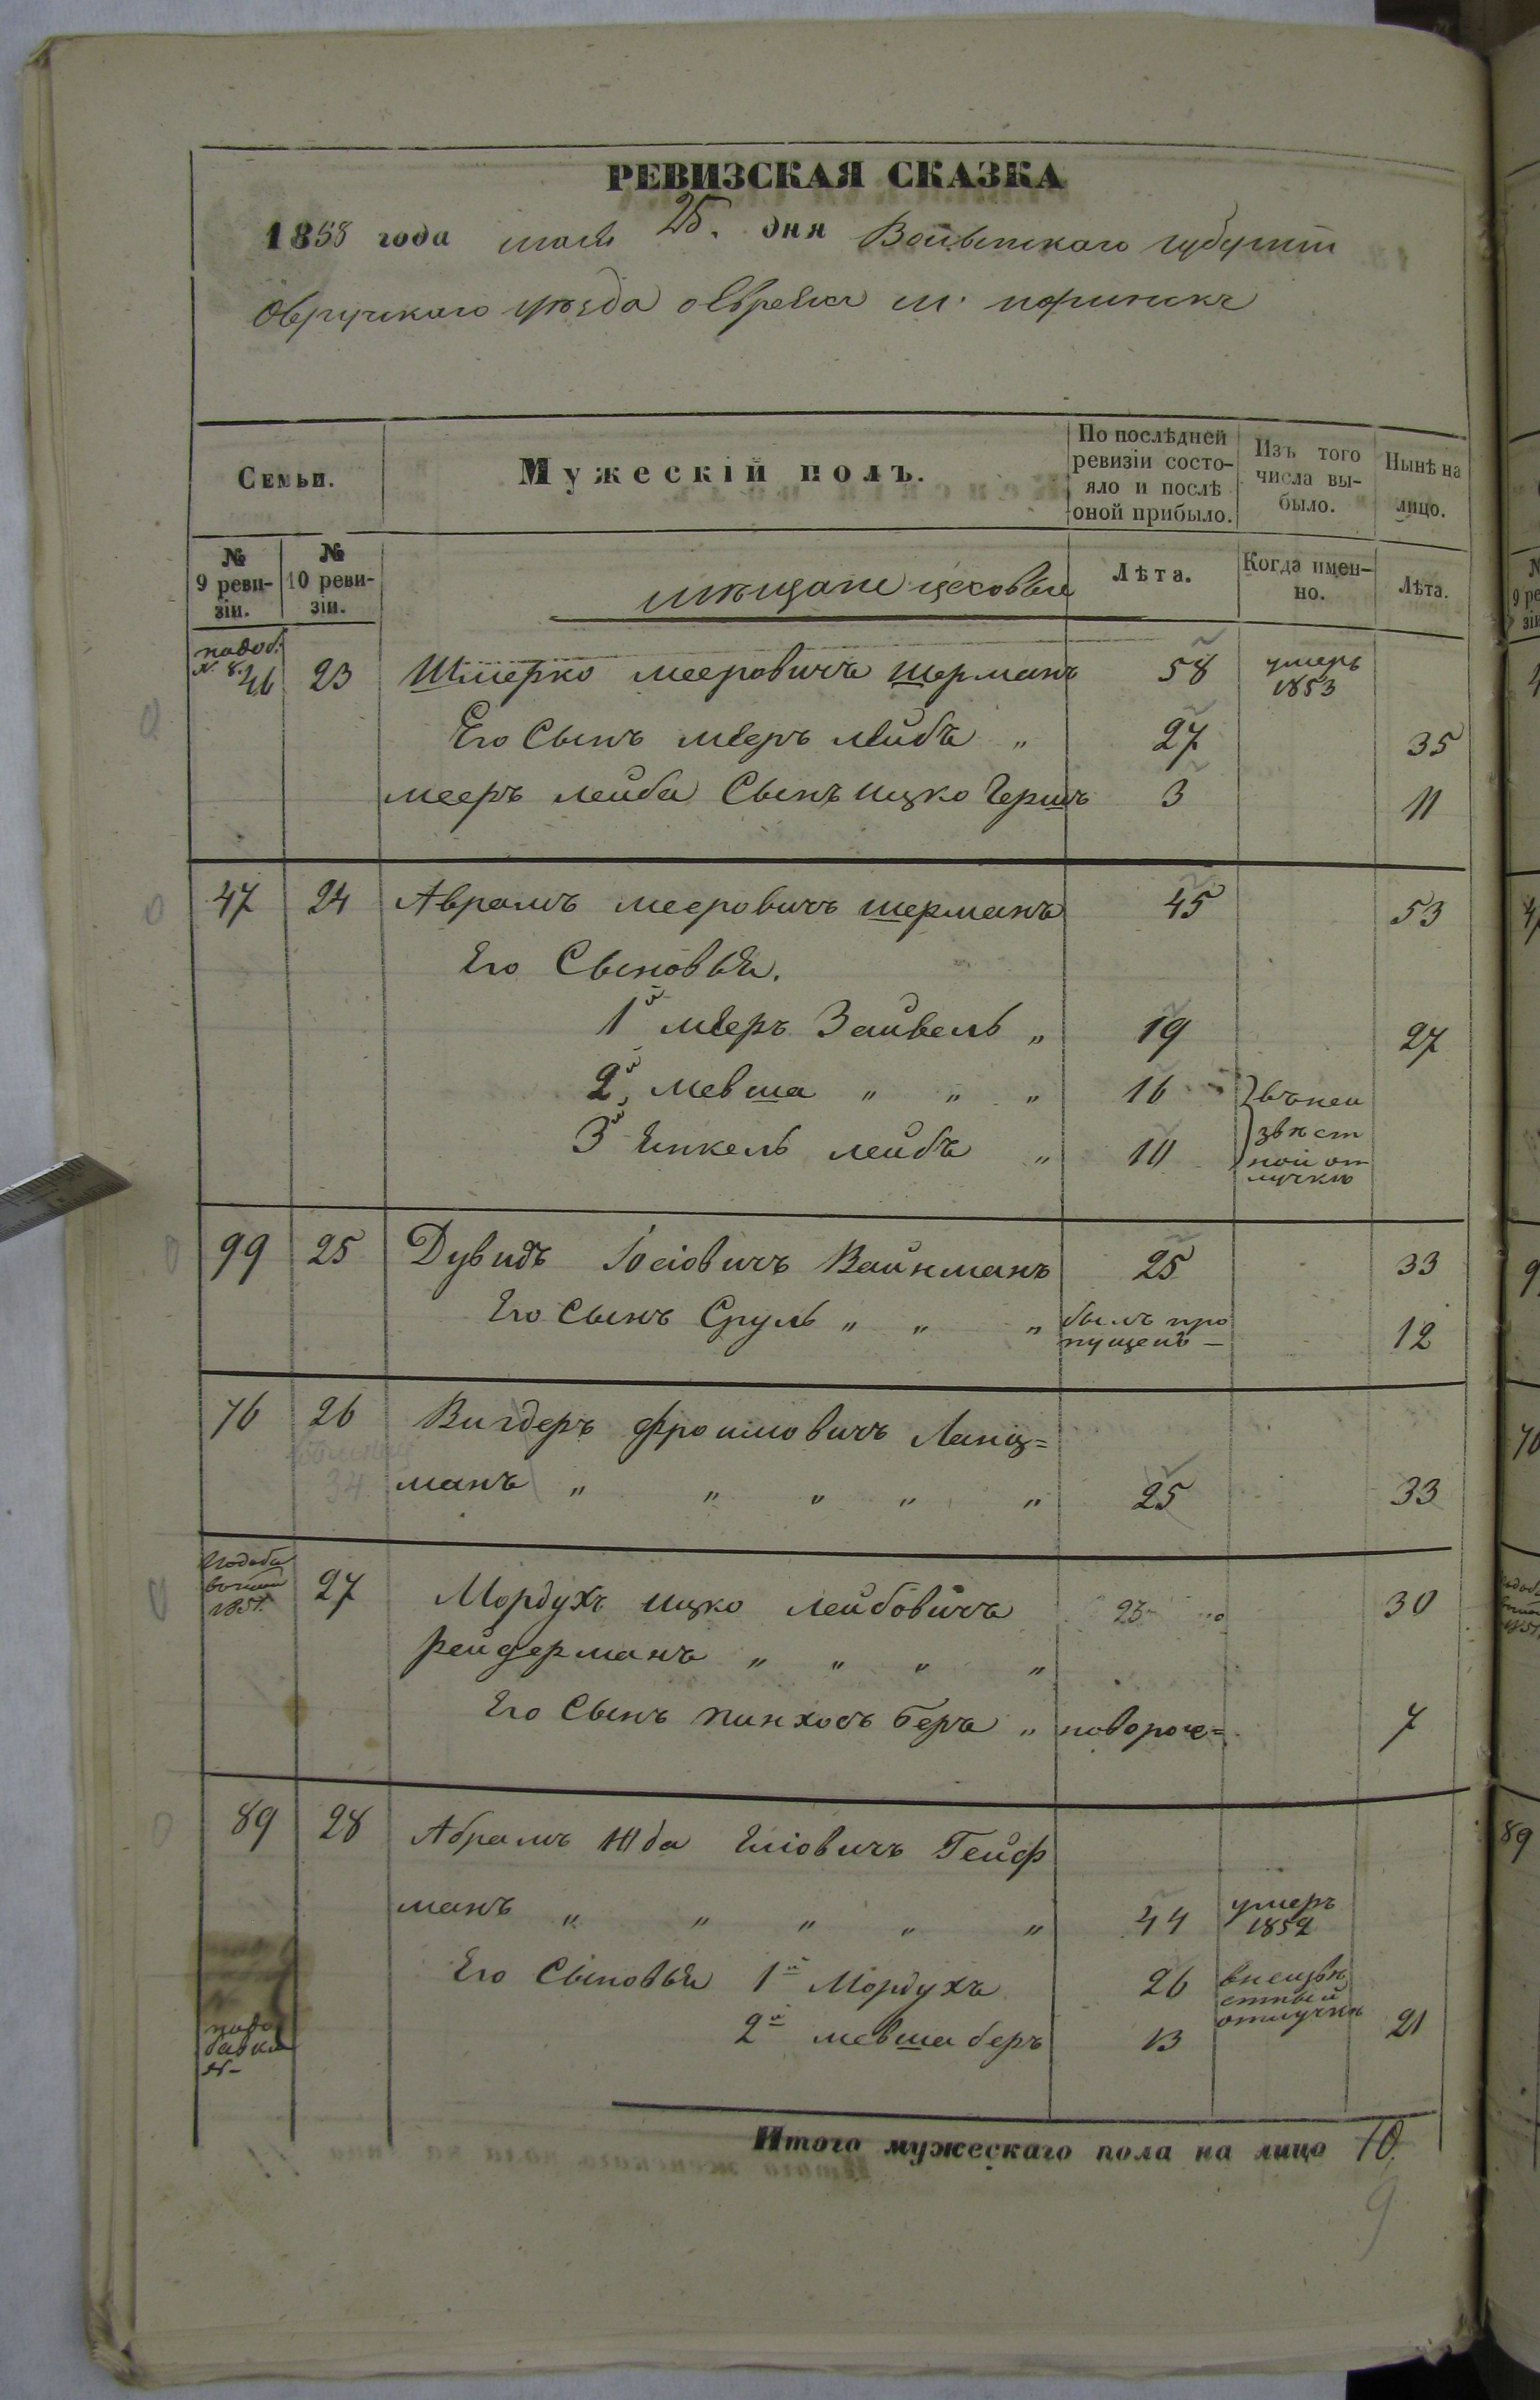 РЕВИЗСКАЯ СКАЗКА
1858 года мая 25. дня Волынскаго губерніи
Овручскаго уѣзда о Евреяхъ м. норинскъ
Семьи.
Мужескій полъ.
По послѣдней ревизіи состояло и послѣ оной прибыло.
Изъ того числа выбыло.
Нынѣ на лицо.
№ 9 ревизіи.
№ 10 ревизіи.
мѣщане цеховые
Лѣта.
Когда именно.
Лѣта.
подоб. N. 8. 46 23 Шмерко мееровичъ шерманъ 58 умеръ 1853
Его Сынъ мееръ лейбъ „ 27 35
мееръ лейба Сынъ ицко Гершъ 3 11
47 24 Аврамъ мееровичъ шерманъ 45 53
Его Сыновья.
1й мееръ Зайвель „ 19 27
2й мевша „ „ „ 16 въ неи
3й Янкель лейбъ „ 10 звѣстной отлучкѣ
99 25 Дувидъ Іосіовичъ Вайнманъ 25 33
Его Сынъ Сруль „ „ „ былъ пропущенъ — 12
76 26 Вигдеръ Фроимовичъ Ланц=
34 манъ „ „ „ „ „ 25 33
1851. 27 Мордухъ ицко лейбовичъ 23 30
рейдерманъ „ „ „ „
Его Сынъ пинхосъ беръ „ новорож= 7
89 28 Абрамъ Юда Еліовичъ Гейф
манъ „ „ „ „ „ 44 умеръ 1852
Его Сыновья 1й Мордухъ 26 внеизвѣстный отлучкѣ
2й мевша беръ 13 21
Итого мужескаго пола на лицо 10.
9